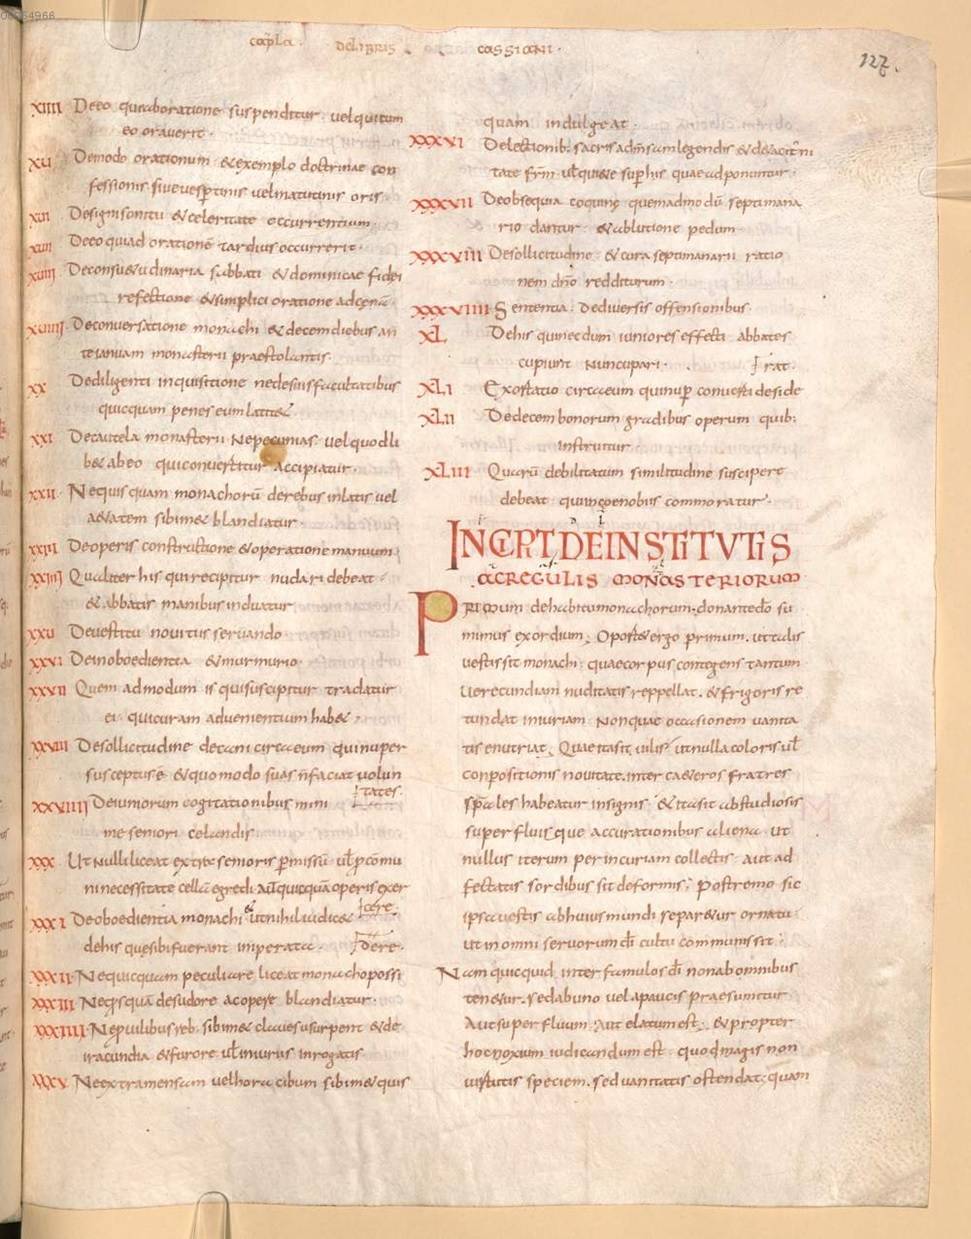 00064966
cap̄la · DE LIBRIS CASSIANI ·
127.
XIIII Deeo qui ab oratione suspenditur · vel qui cum
eo oraverit ·
XV De modo orationum & exemplo doctrinae con
fessionis sive vespertinis vel matutinis oris
XVI De signi sonitu & celeritate occurrentium ·
XVII De eo qui ad orationē tardius occurrerit ·
XVIII De consu&udinaria sabbati & dominicae fidei
refectione & simplici oratione ad cenā ·
XVIIII De conversatione monachi & decem diebus an
te ianuam monasterii praestolantis ·
XX De diligenti inquisitione ne de suis facultatibus
quicquam penes eum latit&
XXI De cautela monasterii Ne pecunias vel quod li
b& ab eo qui convertitur Accipiatur ·
XXII Ne quisquam monachorū de rebus inlatis vel
a&atem sibim& blandiatur ·
XXIII De operis constructione & operatione manuum ·
XXIIII Qualiter his qui recipitur nudari debeat
& abbatis manibus induatur
XXV De vestitu novitus servando
XXVI De inoboedientia & murmurio ·
XXVII Quem ad modum is qui suscipitur tradatur
ei qui curam advenientium hab& ·
XXVIII De sollicitudine decani circa eum qui nuper
susceptus ē & quomodo suas n̄ faciat volun
tates ·
XXVIIII De iuniorum cogitationibus mini
me seniori celandis ·
XXX Ut Nulli liceat extra senioris p̄missū vl̄ p̄ comu
ni necessitate cellā egredi aut quicquā operis exer
cere ·
XXXI De oboedientia monachi & ut nihil iudic&
de his que sibi fuerant imperata · dere ·
XXXII Ne quicquam peculiare liceat monacho possi
XXXIII Ne qisquā de sudore ac opere blandiatur ·
XXXIIII Ne p vilibus reb: sibim& claves usurpent & de
iracundia & furore vl̄ iniuriis inrogatis
XXXV Ne extra mensam vel hora cibum sibim& quis
quam indulgeat ·
XXXVI De lectionib: sacris ad m̄sam legendis & de
tate frm̄ vl̄ qui& sup his quae adponuntur ·
XXXVII De obsequia coquine quemadmodū septimana
rio dantur · & ablutione pedum
XXXVIII De sollicitudine & cura septimanarii ratio
nem dn̄o redditurum ·
XXXVIIII Sententia · De diversis offensionibus ·
XL De his qui necdum iuniores effecti abbates
cupiunt Nuncupari · rat ·
XLI Exortatio circa eum qui nup conversi deside
XLII De decem bonorum gradibus operum quib:
instruitur ·
XLIII Quarū debilitatum similitudine suscipere
debeat qui in cenobiis commoratur ·
INCIPIT DE INSTITUTIS
AC REGULIS MONASTERIORUM
PRIMUM de habitu monachorum · donante dō su
mimus exordium; Oport& ergo primum · ut talis
vestis sit monachi quae corpus contegens tantum
verecundiam nuditatis reppellat · & frigoris re
tundat iniuriam · Non quae occasionem vanita
tis enutriat; Quae ita sit vilis ut nulla coloris vl̄
conpositionis novitate · inter ca&eros fratres
spāles habeatur insignis & ita sit ab studiosis
superfluisque accurationibus aliena · ut
nullus iterum per incuriam collectis aut ad
fectatis sordibus sit deformis; postremo sic
ipsa vestis ab huius mundi separ&ur ornatu
ut in omni servorum dī cultu communis sit :
Nam quicquid inter famulos dī non ab omnibus
ten&ur · sed ab uno vel a paucis praesumitur
Aut superfluum · Aut elatum est; & propter
hoc noxium iudicandum est · quod magis non
virtutis speciem · sed vanitatis ostendat; quam